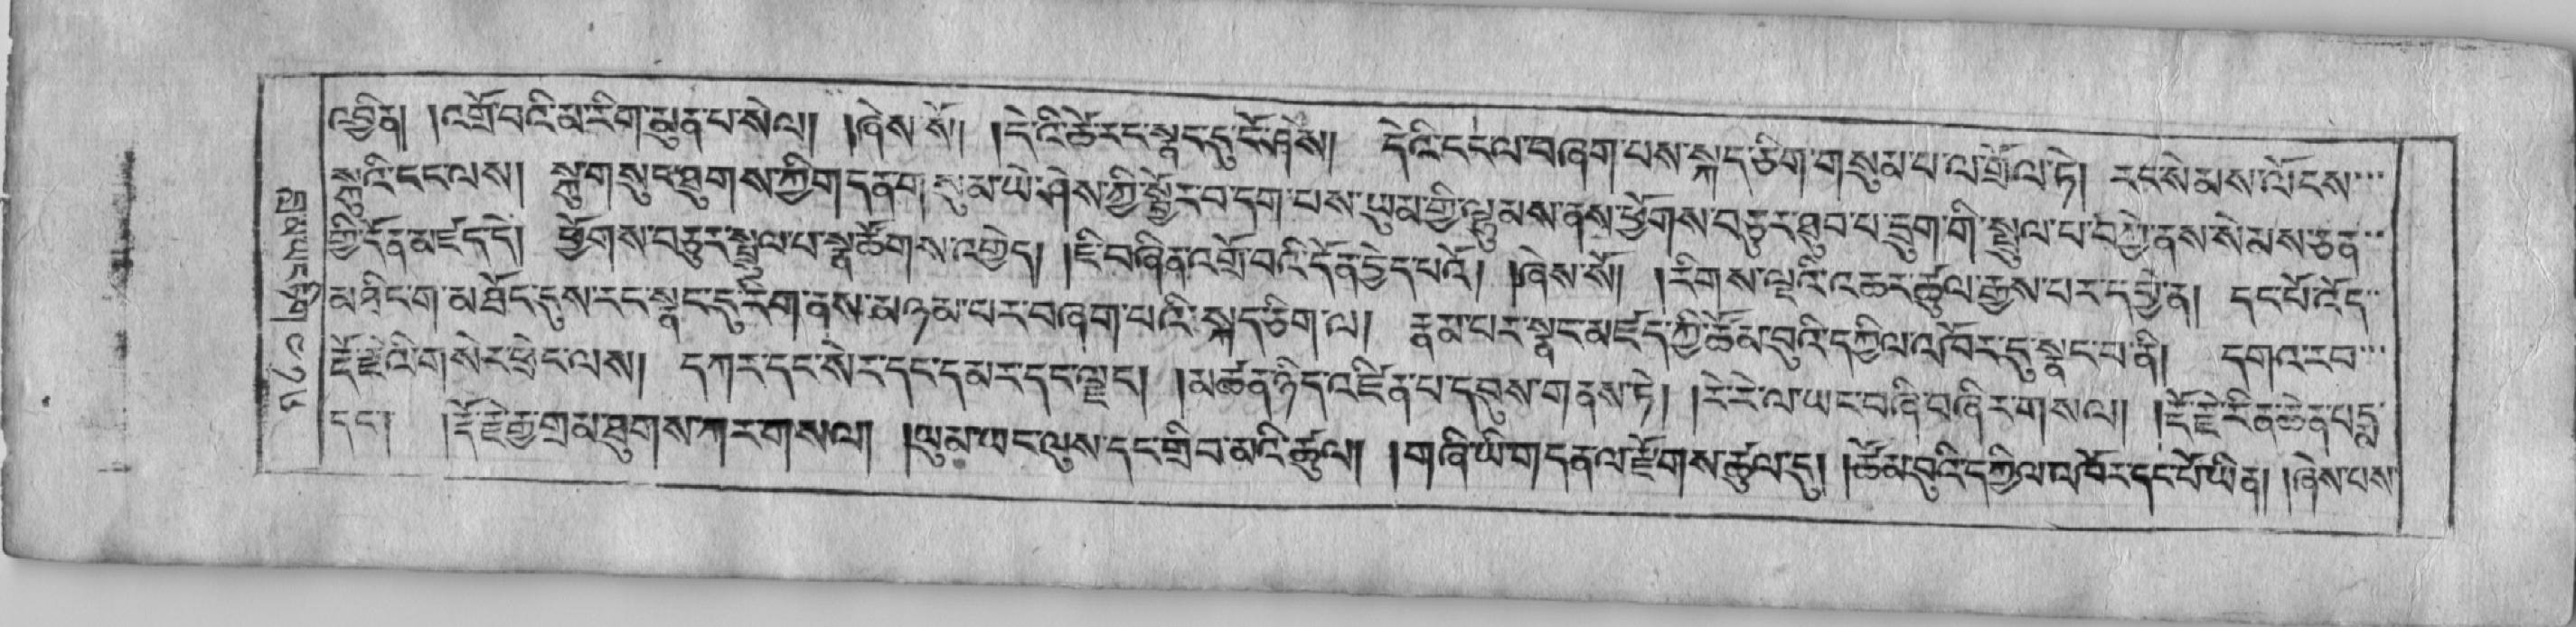 འབྱིན། །འགྲོ་བའི་མ་རིག་མུན་པ་སེལ། །ཞེས་སོ། །དེ་འི་ཚེ་རང་སྣང་དུ་ངོ་ཤེས། དེ་འི་ངང་ལ་བཞག་པས་སྐད་ཅིག་གསུམ་པ་ལ་གྲོལ་ཏེ། རང་སེམས་ལོངས་
སྐུའི་ངང་ལས། སྐུ་གསུང་ཐུགས་ཀྱི་གདན་གསུམ་ཡེ་ཤེས་ཀྱི་སྤྱོར་བ་དག་པས་ཡུམ་གྱི་ལྷུམས་ནས་ཕྱོགས་བཅུར་ཐུབ་པ་དྲུག་གི་སྤྲུལ་པ་བཀྱེ་ནས་སེམས་ཅན་
གྱི་དོན་མཛད་དེ། ཕྱོགས་བཅུར་སྤྲུལ་པ་སྣ་ཚོགས་འགྱེད། །ཇི་བཞིན་འགྲོ་བའི་དོན་བྱེད་པའོ། །ཞེས་སོ། །རིགས་ལྔའི་འཆར་ཚུལ་རྒྱས་པར་དབྱེ་ན། དང་པོ་འོད་
མཐིང་ག་མཐོང་དུས་རང་སྣང་དུ་རིག་ནས་མཉམ་པར་བཞག་པའི་སྐད་ཅིག་ལ། རྣམ་པར་སྣང་མཛད་ཀྱི་ཚོམ་བུའི་དཀྱིལ་འཁོར་དུ་སྣང་བ་ནི། དགའ་རབ་
རྡོ་རྗེ་འི་གསེར་ཕྲེང་ལས། དཀར་དང་སེར་དང་དམར་དང་ལྗང། །མཚན་ཉིད་འཛིན་པ་དབུས་གནས་ཏེ། །རེ་རེ་ལ་ཡང་བཞི་བཞི་ར་གསལ། །རྡོ་རྗེ་རིན་ཆེན་པདྨ་
དང། །རྡོ་རྗེ་རྒྱ་གྲམ་ཐུགས་ཀར་གསལ། །ཡུམ་ཡང་ལུས་དང་གྲིབ་མའི་ཚུལ། །གཞི་ཡི་གདན་ལ་རྫོགས་ཚུལ་དུ། །ཚོམ་བུའི་དཀྱིལ་འཁོར་དང་པོ་ཡིན། །ཞེས་པས་